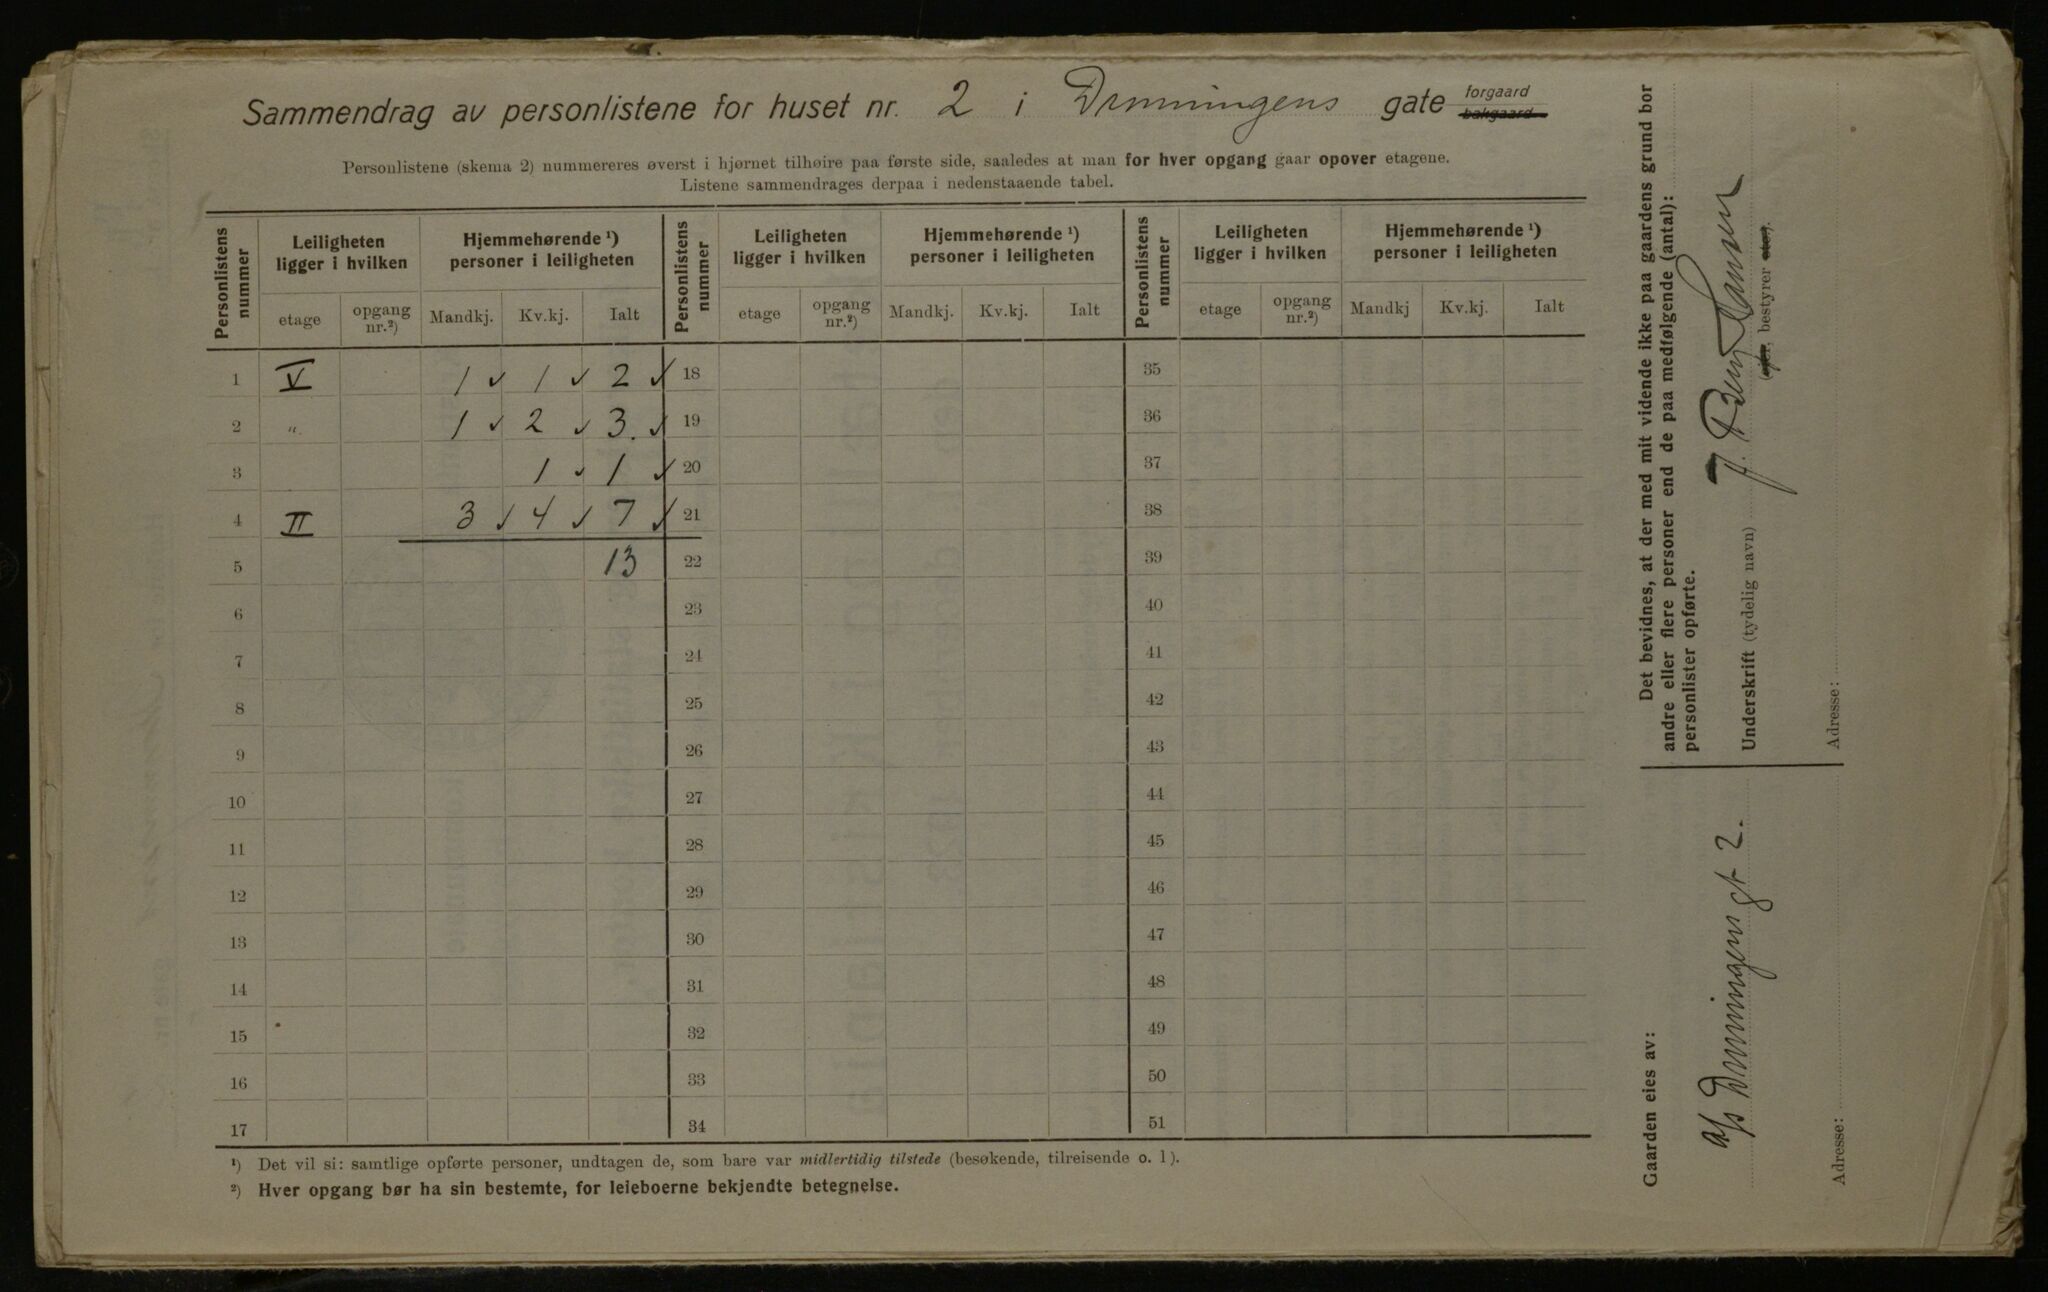 Sammendrag av personlistene for huset nr. 2 i Dronningens gate forgaard bakgaard
Personlistene (skema 2) nummereres øverst i hjørnet tilhøire paa første side, saaledes at man for hver opgang gaar opover etagene.
Listene sammendrages derpaa i nedenstaaende tabel.
Personlistens nummer
Leiligheten ligger i hvilken
Hjemmehørende ¹) personer i leiligheten
Personlistens nummer
Leiligheten ligger i hvilken
Hjemmehørende ¹) personer i leiligheten
Personlistens nummer
Leiligheten ligger i hvilken
Hjemmehørende ¹) personer i leiligheten
etage opgang nr.²) Mandkj. Kv.kj. Ialt etage opgang nr.²) Mandkj. Kv.kj. Ialt etage opgang nr.²) Mandkj Kv.kj. Ialt
1 V 1 ✓ 1 ✓ 2 ✓ 18 35
2 „ 1 ✓ 2 ✓ 3. ✓ 19 36
3 1 ✓ 1 ✓ 20 37
4 II 3 ✓ 4 ✓ 7 ✓ 21 38
5 13 22 39
6 23 40
7 24 41
8 25 42
9 26 43
10 27 44
11 28 45
12 29 46
13 30 47
14 31 48
15 32 49
16 33 50
17 34 51
¹) Det vil si: samtlige opførte personer, undtagen de, som bare var midlertidig tilstede (besøkende, tilreisende o. l).
²) Hver opgang bør ha sin bestemte, for leieboerne bekjendte betegnelse.
Det bevidnes, at der med mit vidende ikke paa gaardens grund bor
andre eller flere personer end de paa medfølgende (antal):
personlister opførte.
Underskrift (tydelig navn) J. Hansen
(eier, bestyrer etc.)
Adresse:
Gaarden eies av:
A/S Dronningens gt 2.
Adresse: